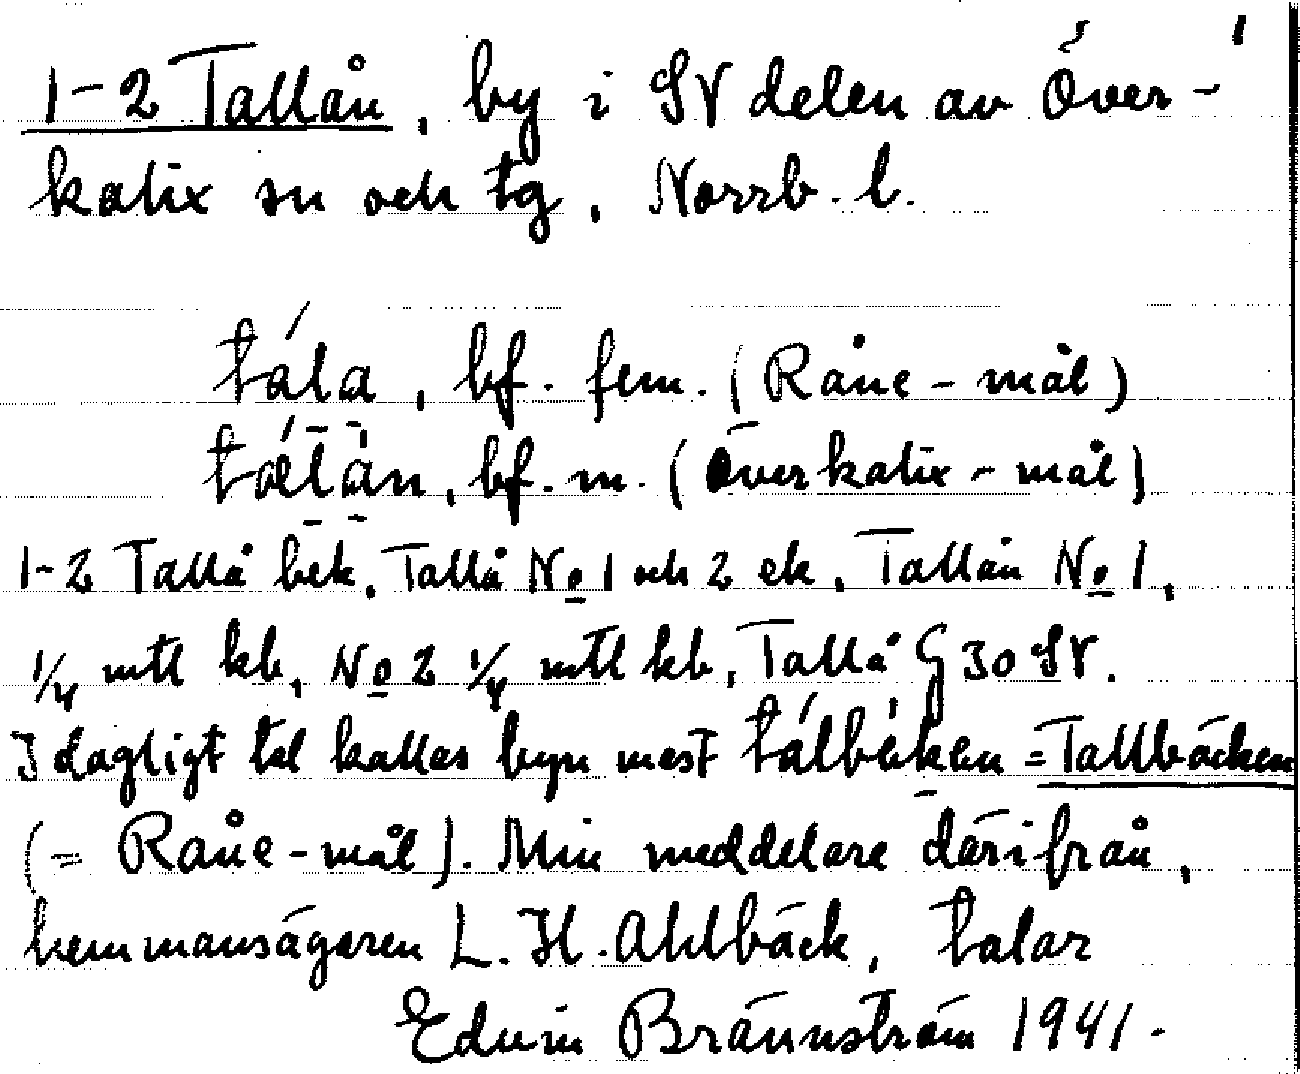 1
1-2 Tallån, by i SV delen av Över-
kalix sn och tg, Norrb. l.
tála, bf. fem. (Råne-mål)
bf. m. (Överkalix-mål)
1-2 Tallå bek, Tallå No 1 och 2 ek, Tallån No 1,
1/4 mtl kb, No 2 1/4 mtl kb, Tallå G 30 SV.
I dagligt tal kallas byn mest = Tallbäcken
(= Råne-mål). Min meddelare därifrån,
hemmansägaren L. H. Ahlbäck, talar
Edvin Brännström 1941.